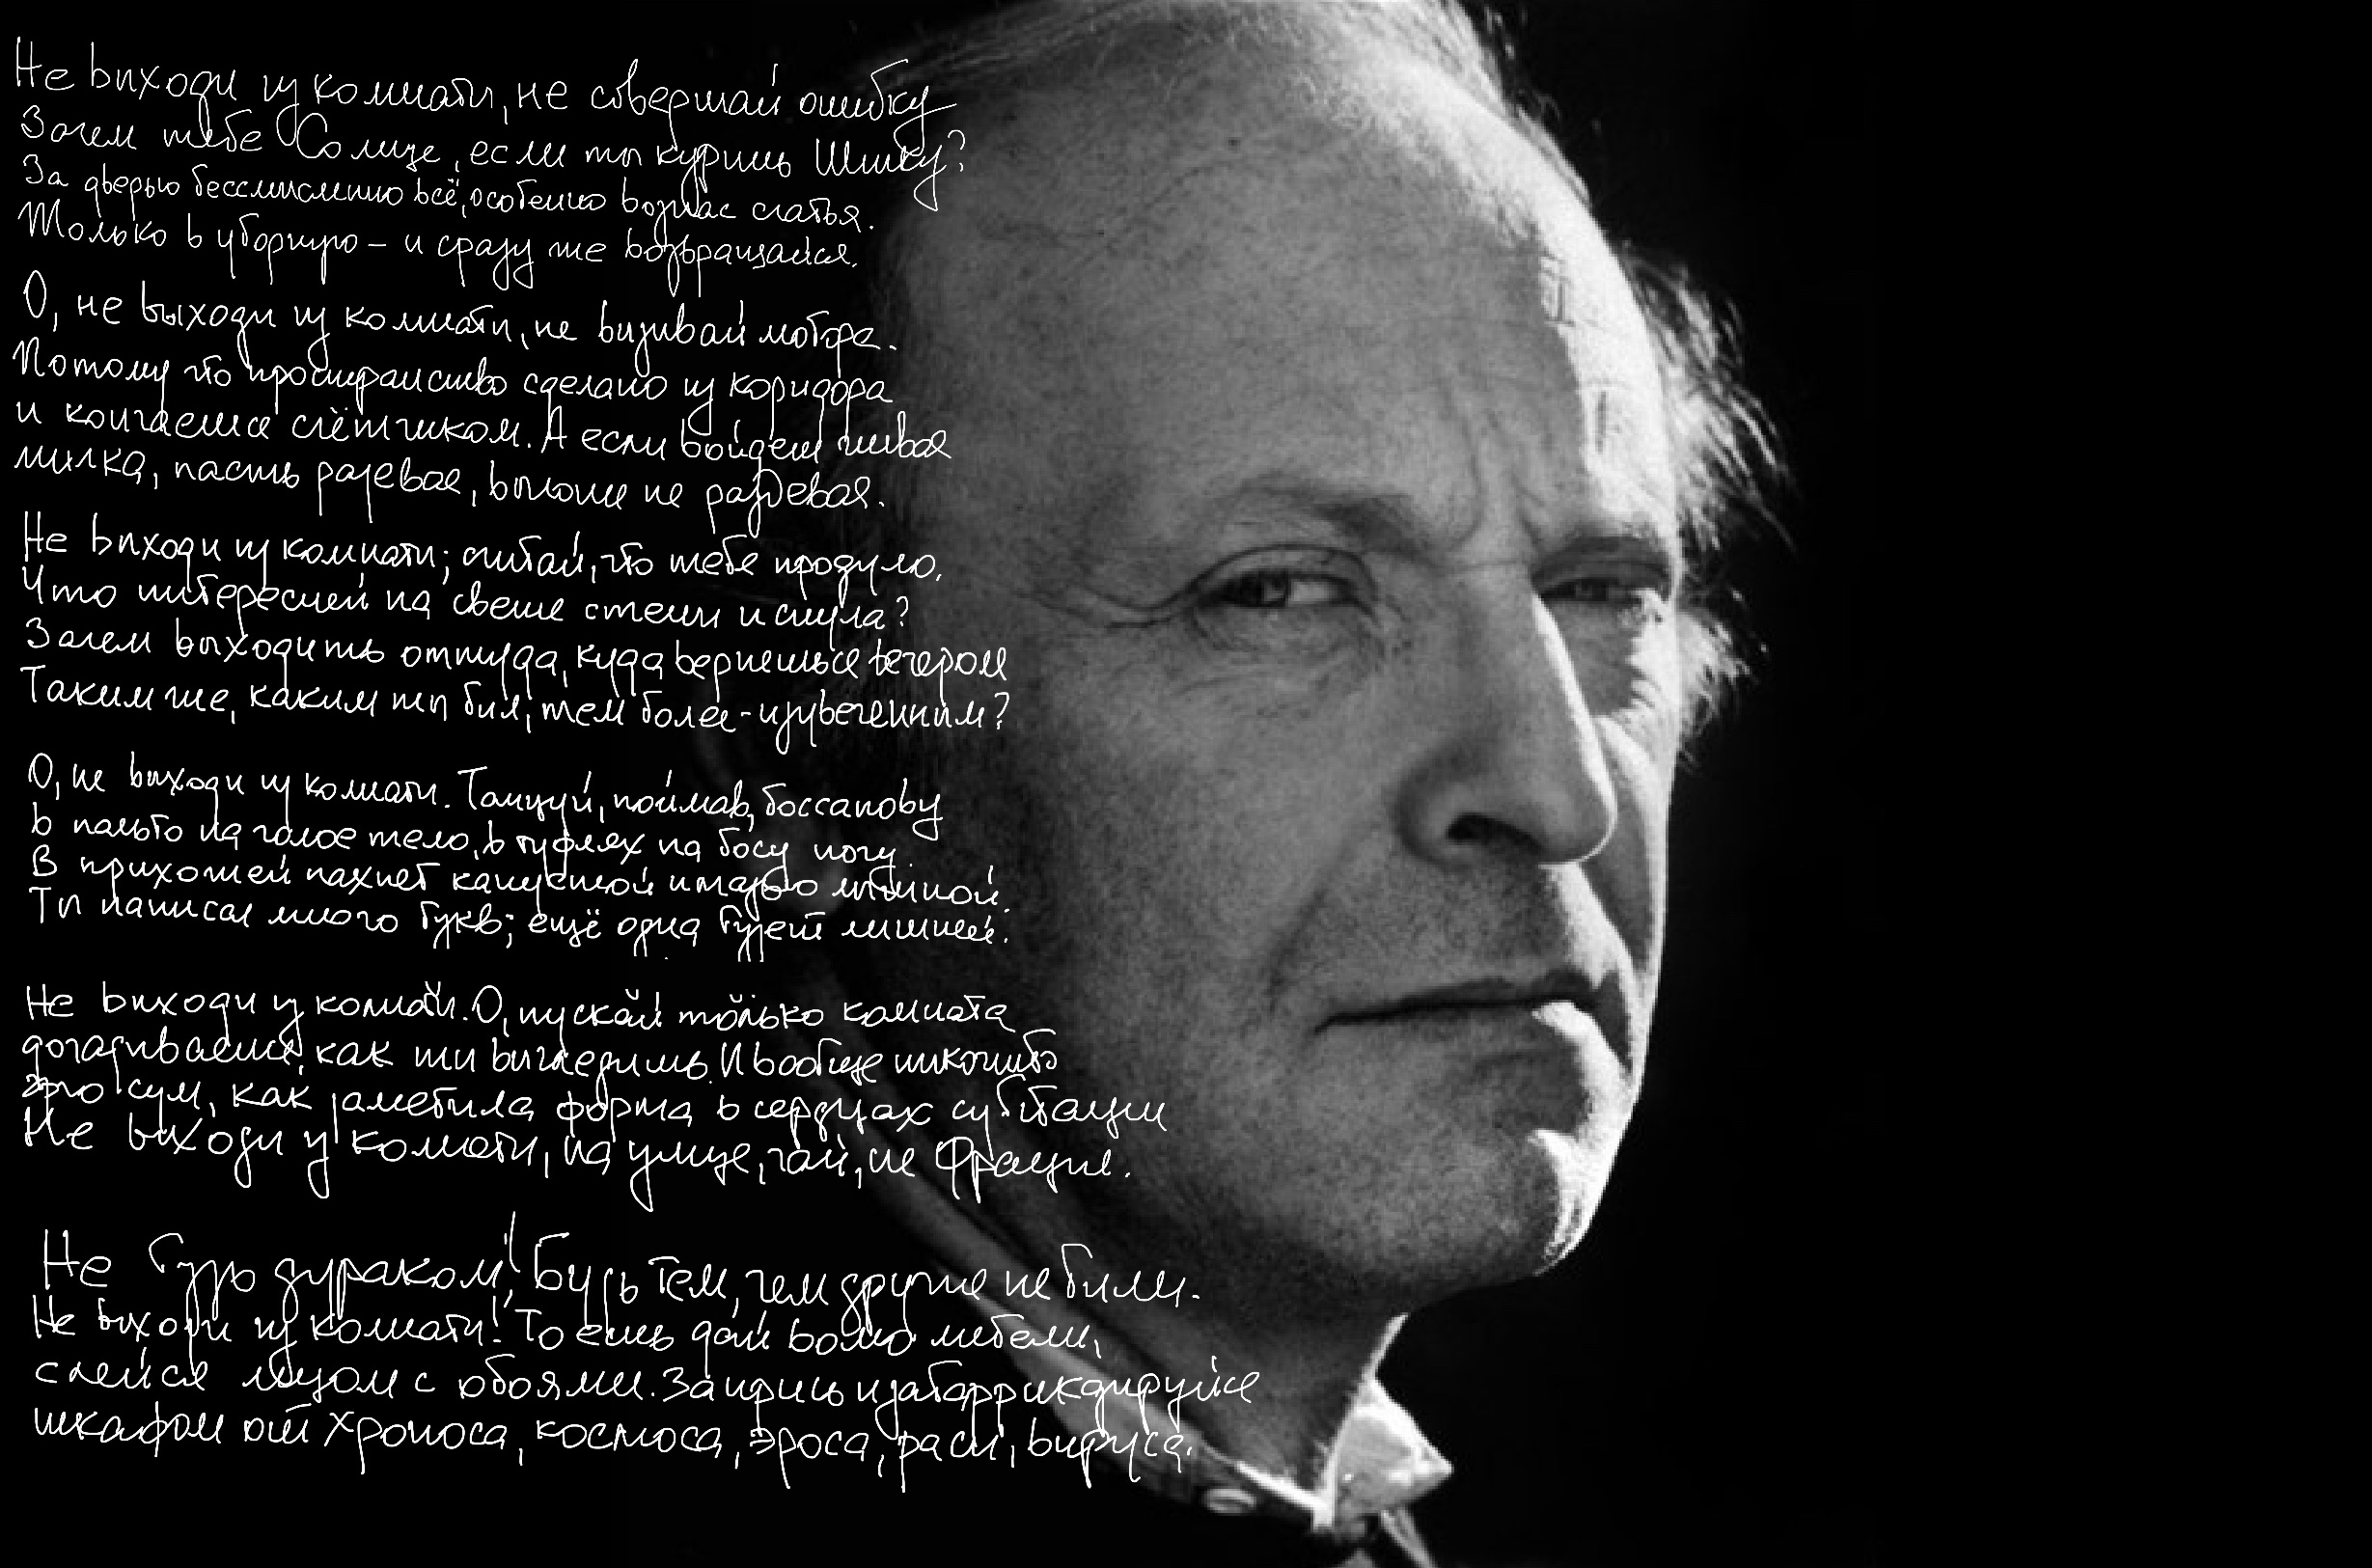 Не выходи из комнаты, не совершай ошибку
Зачем тебе Солнце, если ты куришь Шипку?
За дверью бессмысленно всё, особенно возглас счастья.
Только в уборную – и сразу же возвращайся.
О, не выходи из комнаты, не вызывай мотора.
Потому что пространство сделано из коридора
и кончается счётчиком. А если войдет живая
милка, пасть разевая, выгони не раздевая.
Не выходи из комнаты; считай, что тебе продуло.
Что интересней на свете стены и стула?
Зачем выходить оттуда, куда вернешься вечером
Таким же, каким ты был, тем более - изувеченным?
О, не выходи из комнаты. Танцуй, поймав, боссанову
в пальто на голое тело, в туфлях на босу ногу.
В прихожей пахнет капустой и мазью лыжной.
Ты написал много букв; ещё одна будет лишней.
Не выходи из комнаты. О, пускай только комната
догадывается, как ты выглядишь. И вообще инкогнито
эрго сум, как заметила форма в сердцах субстанции
Не выходи из комнаты, на улице, чай, не Франция.
Не будь дураком! Будь тем, чем другие не были.
Не выходи из комнаты! То есть дай волю мебели,
слейся лицом с обоями. Запрись и забаррикадируйся
шкафом от хроноса, космоса, эроса, расы, вируса.